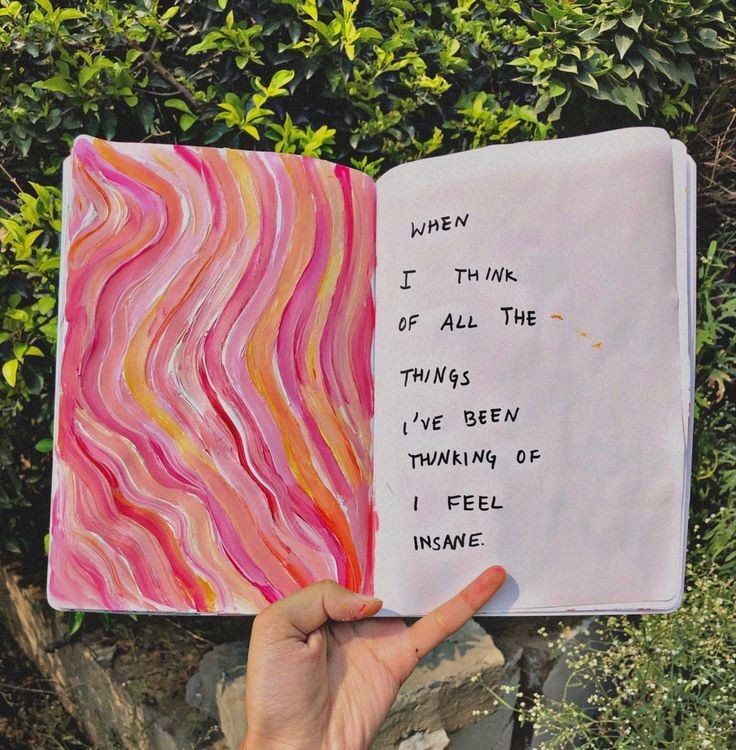 WHEN
I THINK
OF ALL THE
THINGS
I'VE BEEN
THINKING OF
I FEEL
INSANE.